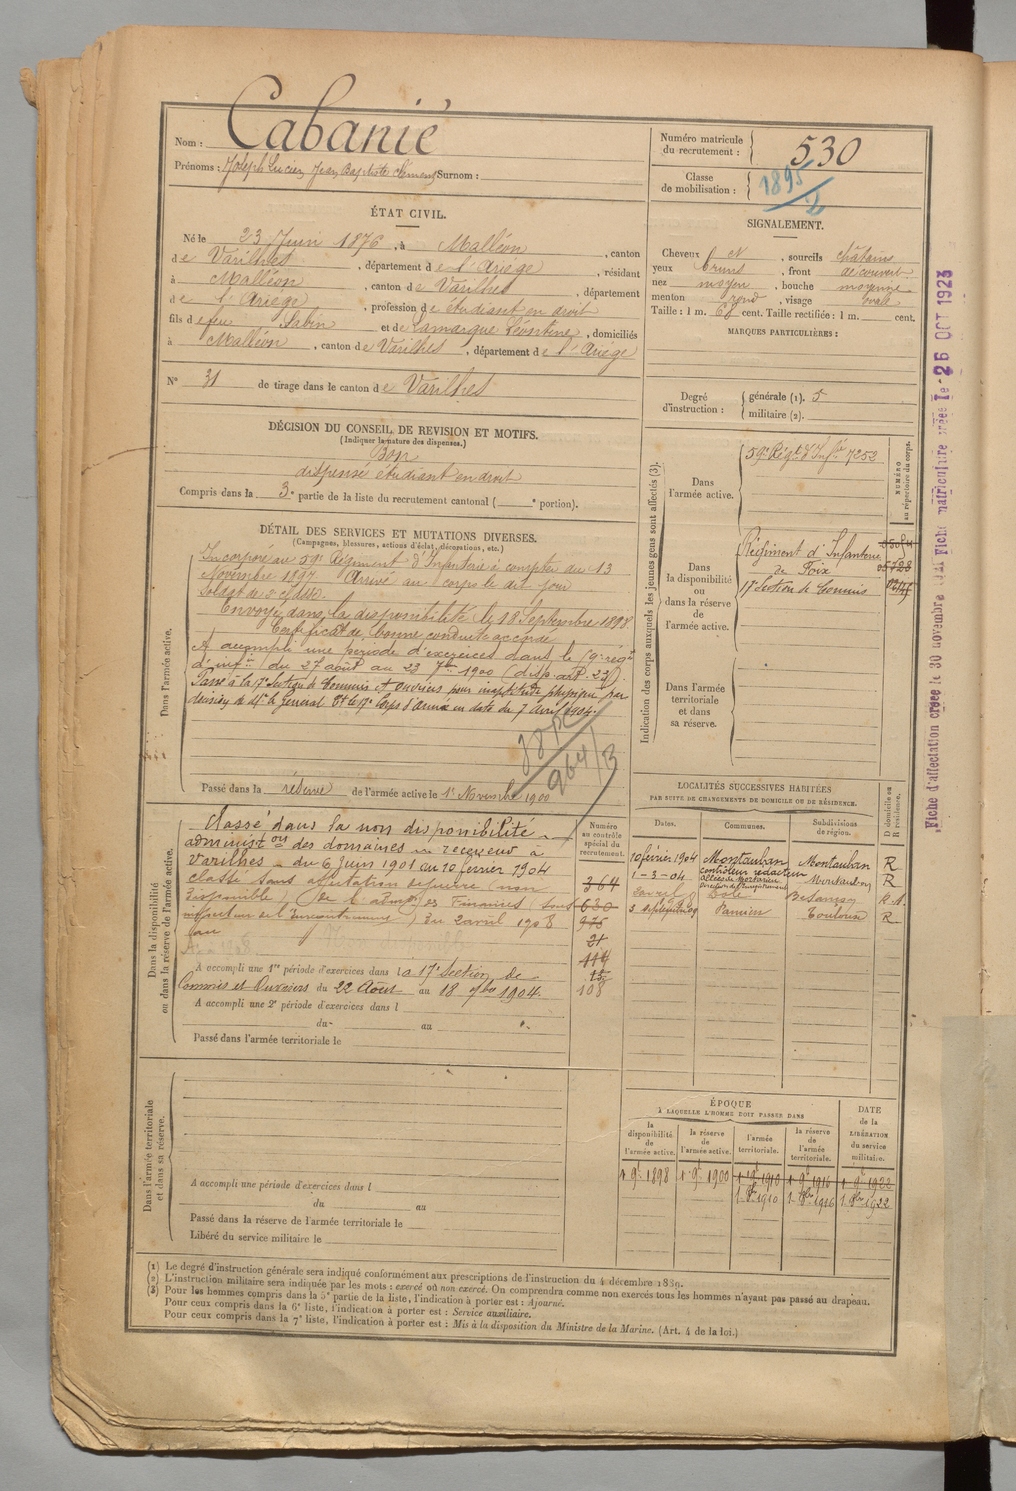 Nom : Cabanié
Prénoms : Joseph Lucien Jean Baptiste Clément Surnom :
Numéro matricule du recrutement : 530
Classe de mobilisation : 1895
ÉTAT CIVIL.
Né le 23 Juin 1876, à Malléon, canton
de Varilhes, département de l'Ariège, résidant
à Malléon, canton de Varilhes, département
de l'Ariège, profession de étudiant en droit
fils de feu Sabin et de Lamarque Léontine, domiciliés
à Malléon, canton de Varilhes, département de l'Ariège
N° 31 de tirage dans le canton de Varilhes
SIGNALEMENT.
Cheveux et, sourcils châtains
yeux bruns, front découvert
nez moyen, bouche moyenne
menton rond, visage ovale
Taille : 1 m. 68 cent. Taille rectifiée : 1 m. cent.
MARQUES PARTICULIÈRES :
Degré d'instruction : générale (1). 5
militaire (2).
DÉCISION DU CONSEIL DE REVISION ET MOTIFS.
(Indiquer la nature des dispenses.)
Bon
dispensé étudiant en droit
Compris dans la 3e partie de la liste du recrutement cantonal ( e portion).
DÉTAIL DES SERVICES ET MUTATIONS DIVERSES.
(Campagnes, blessures, actions d'éclat, décorations, etc.)
Dans l'armée active.
Incorporé au 59e Régiment d'Infanterie à compter du 13
Novembre 1897 Arrivé au corps le dit jour
Soldat de 2e classe.
Envoyé dans la disponibilité le 18 Septembre 1898
Certificat de bonne conduite accordé
A accompli une période d'exercices dans le 59e régt
d'infie du 27 août au 23 7bre 1900
Passé à la 17e Section de Commis et Ouvriers pour inaptitude physique par
décision de Mr le Général Ct le 17e Corps d'Armée en date du 7 avril 1904.
964/3
Passé dans la réserve de l'armée active le 1er Novembre 1900
Indication des corps auxquels les jeunes gens sont affectés (3).
NUMÉRO au répertoire du corps.
Dans l'armée active.
59e Régt d'Infie 7252
Dans la disponibilité ou dans la réserve de l'armée active.
Régiment d'Infanterie
de Foix
17e Section de Commis
Dans l'armée territoriale et dans sa réserve.
Dans la disponibilité ou dans la réserve de l'armée active.
Classé dans la non disponibilité
administon des domaines receveur à
Varilhes du 6 Juin 1901 au 10 février 1904
classé sans affectation (non
disponible) de l'admon des Finances sous
inspecteur de l'Enregistrement) du 2 avril 1908
au
A accompli une 1re période d'exercices dans la 17e Section de
Commis et Ouvriers du 22 Août au 18 7bre 1904.
A accompli une 2e période d'exercices dans l
du au
Passé dans l'armée territoriale le
Numéro au contrôle spécial du recrutement.
364
630
975
21
114
15
108
LOCALITÉS SUCCESSIVES HABITÉES
PAR SUITE DE CHANGEMENTS DE DOMICILE OU DE RÉSIDENCE.
Dates. Communes. Subdivisions de région. D domicile ou R résidence.
10 février 1904 Montauban Montauban R
1-3-04 contrôleur rédacteur Montauban R
Dole Besançon
3 septembre 09 Pamiers Toulouse R
Dans l'armée territoriale et dans sa réserve.
A accompli une période d'exercices dans l
du au
Passé dans la réserve de l'armée territoriale le
Libéré du service militaire le
ÉPOQUE
A LAQUELLE L'HOMME DOIT PASSER DANS
la disponibilité de l'armée active. la réserve de l'armée active. l'armée territoriale. la réserve de l'armée territoriale. DATE de la LIBÉRATION du service militaire.
1 9e 1898 1 9e 1900 1 9e 1910 1 9e 1916 1 9e 1922
1 8e 1910 1 8bre 1916 1 8bre 1922
(1) Le degré d'instruction générale sera indiqué conformément aux prescriptions de l'instruction du 4 décembre 1889.
(2) L'instruction militaire sera indiquée par les mots : exercé ou non exercé. On comprendra comme non exercés tous les hommes n'ayant pas passé au drapeau.
(3) Pour les hommes compris dans la 5e partie de la liste, l'indication à porter est : Ajourné.
Pour ceux compris dans la 6e liste, l'indication à porter est : Service auxiliaire.
Pour ceux compris dans la 7e liste, l'indication à porter est : Mis à la disposition du Ministre de la Marine. (Art. 4 de la loi.)
Fiche d'affectation créée le 30 novembre
Fiche matriculaire créée le 26 OCT 1923